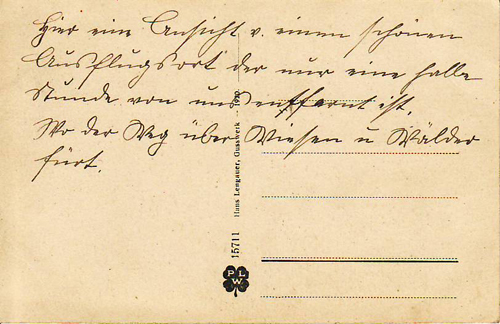 Hier eine Ansicht v. einem schönen
Ausflugsort der nur eine halbe
Stunde von uns entfernt ist.
Wo der Weg über Wiesen u Wälder
fürt.
15711 Hans Lengauer, Gusswerk
PLW